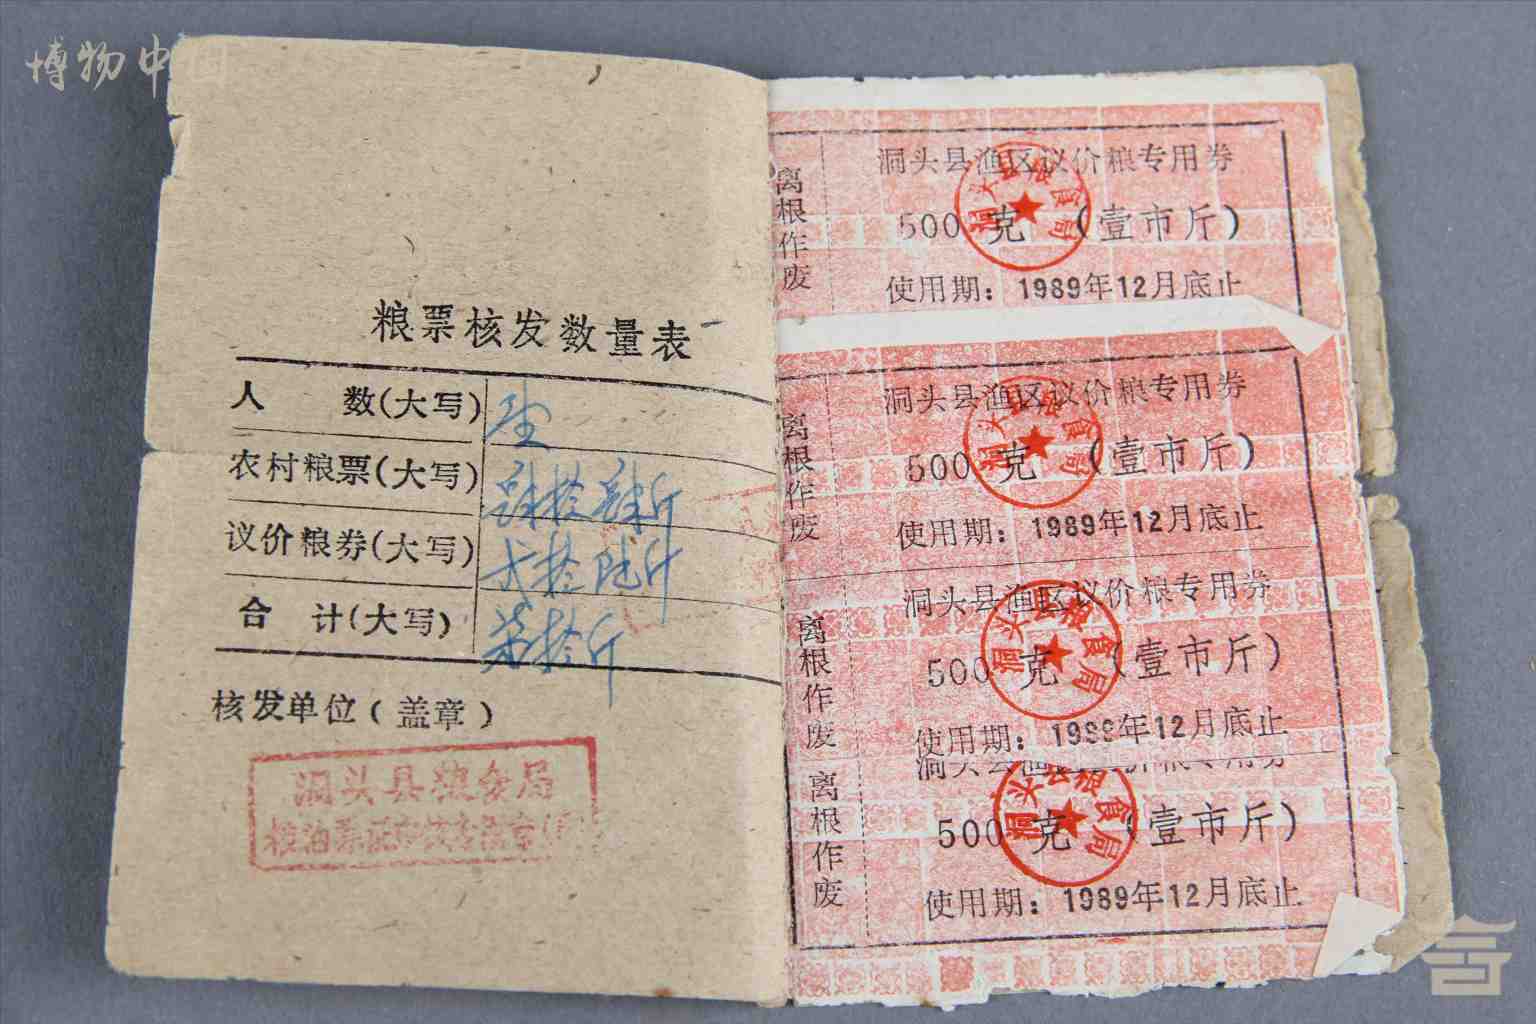 博物中国
粮票核发数量表
人 数(大写) 壹
农村粮票(大写) 肆拾肆斤
议价粮券(大写) 弍拾陆斤
合 计(大写) 柒拾斤
核发单位(盖章)
洞头县粮食局
粮油票证
离根作废
洞头县渔区议价粮专用券
500 克 (壹市斤)
使用期：1989年12月底止
洞头县粮食局
离根作废
洞头县渔区议价粮专用券
500 克 (壹市斤)
使用期：1989年12月底止
洞头县粮食局
离根作废
洞头县渔区议价粮专用券
500 克 (壹市斤)
使用期：1989年12月底止
洞头县粮食局
离根作废
洞头县渔区议价粮专用券
500 克 (壹市斤)
使用期：1989年12月底止
洞头县粮食局